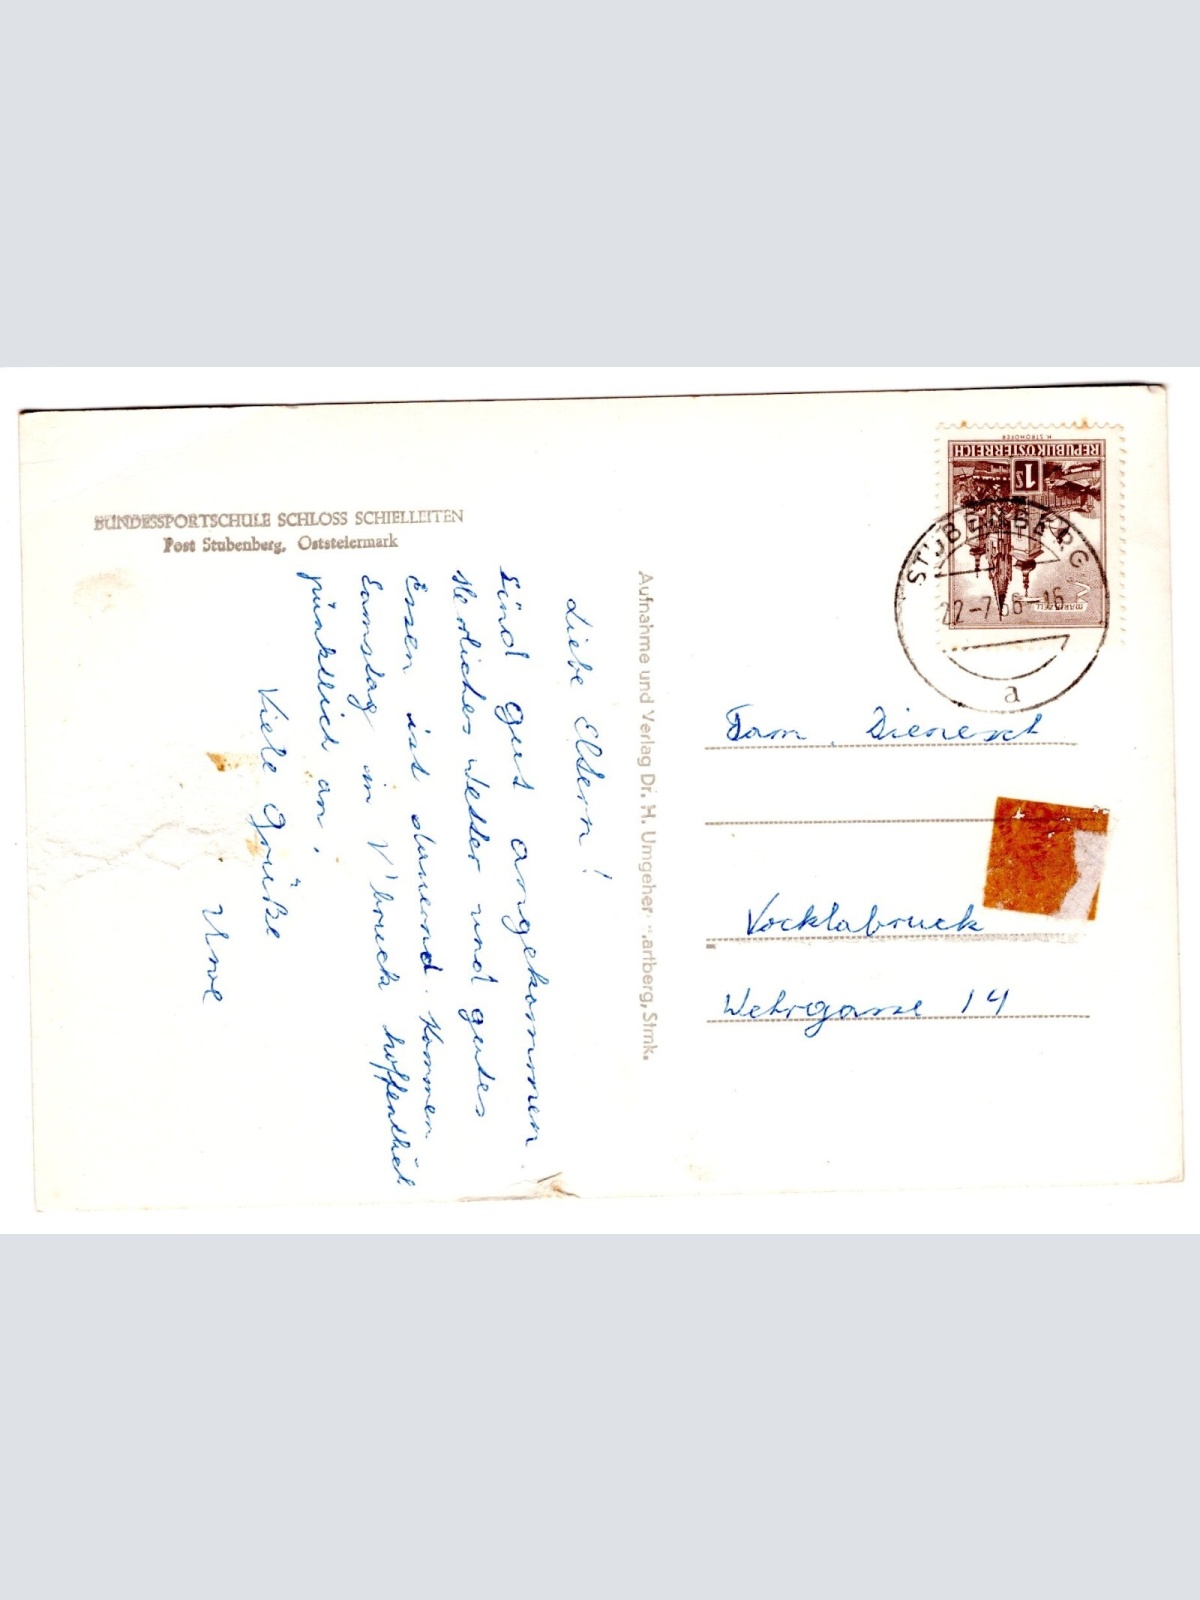 BUNDESSPORTSCHULE SCHLOSS SCHIELLEITEN
Post Stubenberg, Oststeiermark
Liebe Eltern!
Sind gut angekommen.
Herrliches Wetter und gutes
Essen ist dauernd. Kommen
Samstag in V'bruck hoffentlich
pünktlich an.
Viele Grüße
Uwe
Aufnahme und Verlag Dr. H. Umgeher, artberg, Stmk.
REPUBLIK ÖSTERREICH
H. STROHOFER
1S
MARIAZELL
STUBENBERG
22-7 66-16
a
Fam. Dienesch
Vöcklabruck
Wehrgasse 14